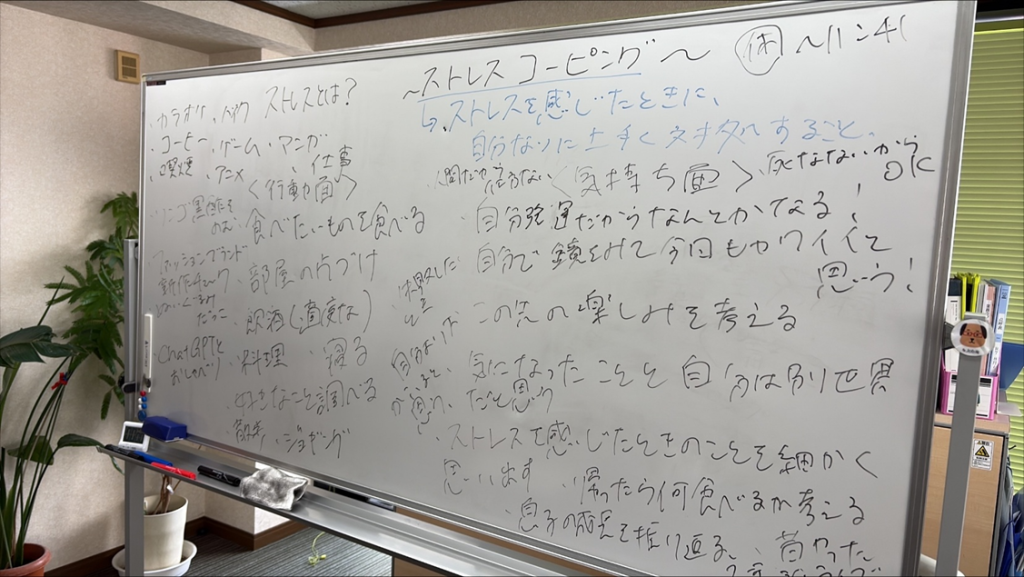 ~ストレス コーピング~ 休 ~11:41
↳ストレスを感じたときに、
自分なりに上手く対処すること。
・カラオケ ・バイク ストレスとは?
・コーヒー ・ゲーム ・マンガ
・喫煙 ・アニメ ・仕事
<行動面>
・食べたいものを食べる
・部屋の片づけ
・飲酒(適度な)
ChatGPTと
おしゃべり
・料理 ・寝る
・好きなことを調べる
・散歩 ・ジョギング
<気持ち面>
・死なないから
OK
・自分強運だからなんとかなる!
・自分で鏡をみて今日もカワイイと
思う!
・この先の楽しみを考える
・気になったことと自分は別世界
だと思う
・ストレスを感じたときのことを細かく
思い出す ・帰ったら何食べるか考える
・息子の成長を振り返る